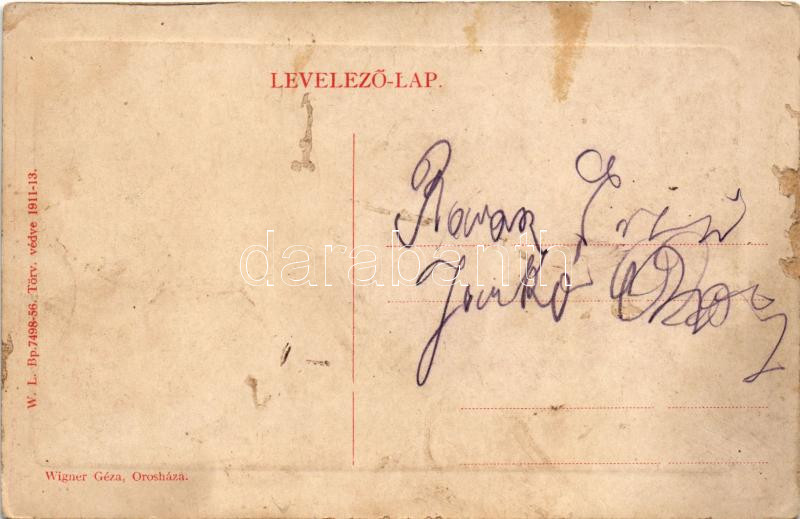 LEVELEZŐ-LAP.
W. L. Bp. 7498-56. Törv. védve 1911-13.
darabanth
Jankó
Wigner Géza, Orosháza.